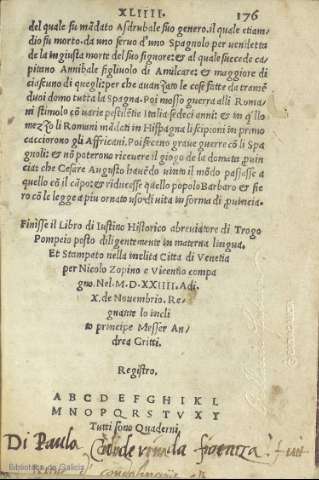 XLIIII. 176
del quale fu mãdato Asdrubale suo genero. il quale etiam
dio fu morto. da uno seruo d'uno Spagnolo per uendetta
de la ingiusta morte del suo signore: & al quale succede ca
pitano Annibale figliuolo di Amilcare: & maggiore di
ciascuno di quegli: per che auanzato le cose fatte da trame
duoi domo tutta la Spagna. Poi mosso guerra alli Roma
ni stimolo cõ uarie pestilẽtie Italia sedeci anni: & in q̃llo
mezzo li Romuni mãdati in Hispagna li scipioni in primo
cacciorono gli Affricani. Poi feceno graue guerre cõ li Spa
gnoli: & nõ poterono riceuere il giogo de la domata ꝓuin
cia: che Cesare Augusto hauẽdo uinto il mõdo passasse a
quello cõ il cãpo: & riducesse quello popolo Barbaro & fie
ro cõ le legge a piu ornato uso di uita in forma di ꝓuincia.
Finisse il Libro di Iustino Historico abreuiatore di Trogo
Pompeio posto diligentemente in materna lingua.
Et Stampato nella inclita Citta di Venetia
per Nicolo Zopino e Vicentio compa
gno. Nel. M.D.XXIIII. Adi.
X. de Nouembrio. Re-
gnante lo incli
to principe Messer An
drea Gritti.
Registro.
A B C D E F G H I K L
M N O P Q R S T V X Y
Tutti sono Quaderni,
Di Paulo la
Biblioteca de Galicia